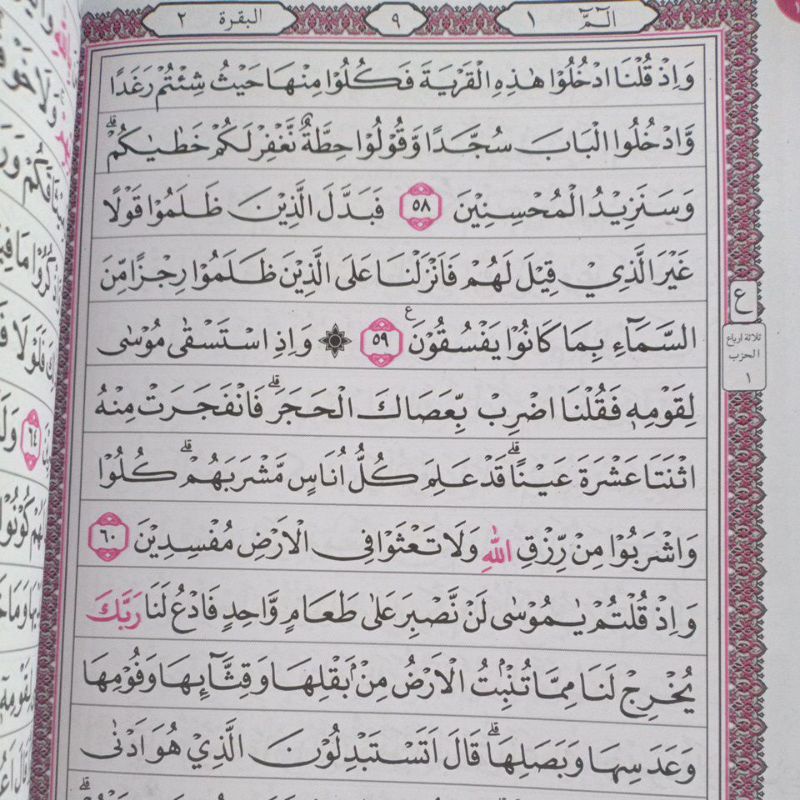 الٓمّٓ ١
٩
البقرة ٢
وَاِذْ قُلْنَا ادْخُلُوْا هٰذِهِ الْقَرْيَةَ فَكُلُوْا مِنْهَا حَيْثُ شِئْتُمْ رَغَدًا
وَّادْخُلُوا الْبَابَ سُجَّدًا وَّقُوْلُوْا حِطَّةٌ نَّغْفِرْ لَكُمْ خَطٰيٰكُمْ ۗ
وَسَنَزِيْدُ الْمُحْسِنِيْنَ ٥٨ فَبَدَّلَ الَّذِيْنَ ظَلَمُوْا قَوْلًا
غَيْرَ الَّذِيْ قِيْلَ لَهُمْ فَاَنْزَلْنَا عَلَى الَّذِيْنَ ظَلَمُوْا رِجْزًا مِّنَ
السَّمَاۤءِ بِمَا كَانُوْا يَفْسُقُوْنَ ࣖ ٥٩ ۞ وَاِذِ اسْتَسْقٰى مُوْسٰى
لِقَوْمِهٖ فَقُلْنَا اضْرِبْ بِّعَصَاكَ الْحَجَرَ ۗ فَانْفَجَرَتْ مِنْهُ
اثْنَتَا عَشْرَةَ عَيْنًا ۗ قَدْ عَلِمَ كُلُّ اُنَاسٍ مَّشْرَبَهُمْ ۗ كُلُوْا
وَاشْرَبُوْا مِنْ رِّزْقِ اللّٰهِ وَلَا تَعْثَوْا فِى الْاَرْضِ مُفْسِدِيْنَ ٦٠
وَاِذْ قُلْتُمْ يٰمُوْسٰى لَنْ نَّصْبِرَ عَلٰى طَعَامٍ وَّاحِدٍ فَادْعُ لَنَا رَبَّكَ
يُخْرِجْ لَنَا مِمَّا تُنْۢبِتُ الْاَرْضُ مِنْۢ بَقْلِهَا وَقِثَّاۤىِٕهَا وَفُوْمِهَا
وَعَدَسِهَا وَبَصَلِهَا ۗ قَالَ اَتَسْتَبْدِلُوْنَ الَّذِيْ هُوَ اَدْنٰى
ع
ثلاثة ارباع
الحزب
١